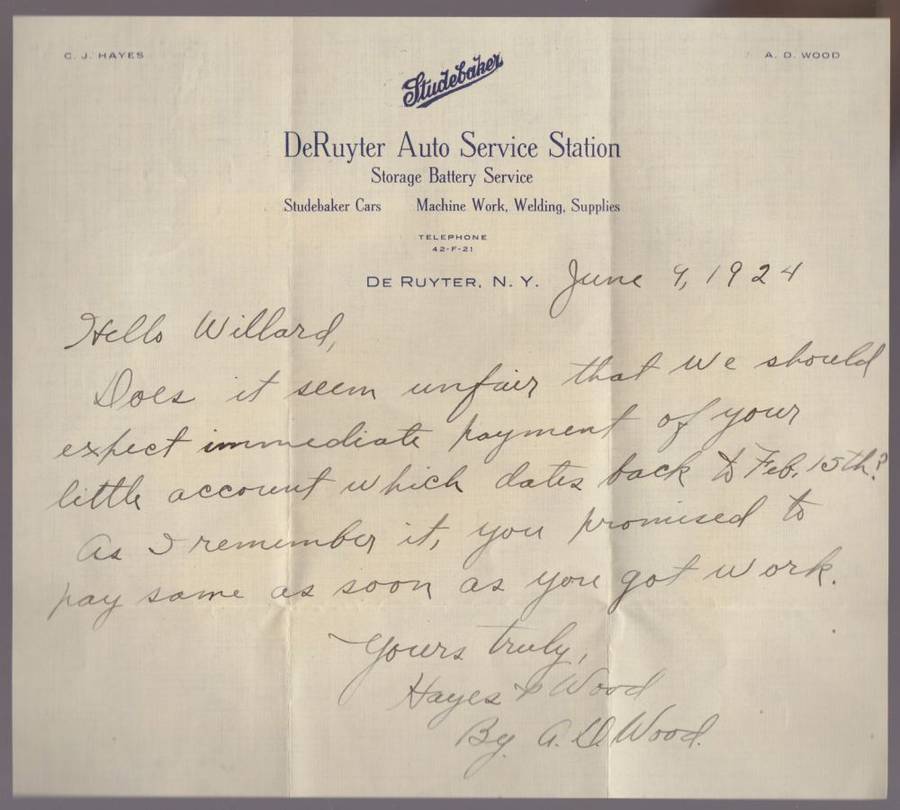 C. J. HAYES
A. D. WOOD
Studebaker
DeRuyter Auto Service Station
Storage Battery Service
Studebaker Cars Machine Work, Welding, Supplies
TELEPHONE
42-F-21
DE RUYTER, N. Y. June 9, 1924
Hello Willard,
Does it seem unfair that we should
expect immediate payment of your
little account which dates back to Feb. 15th?
As I remember it, you promised to
pay same as soon as you got work.
Yours truly,
Hayes & Wood
By. A. D. Wood.